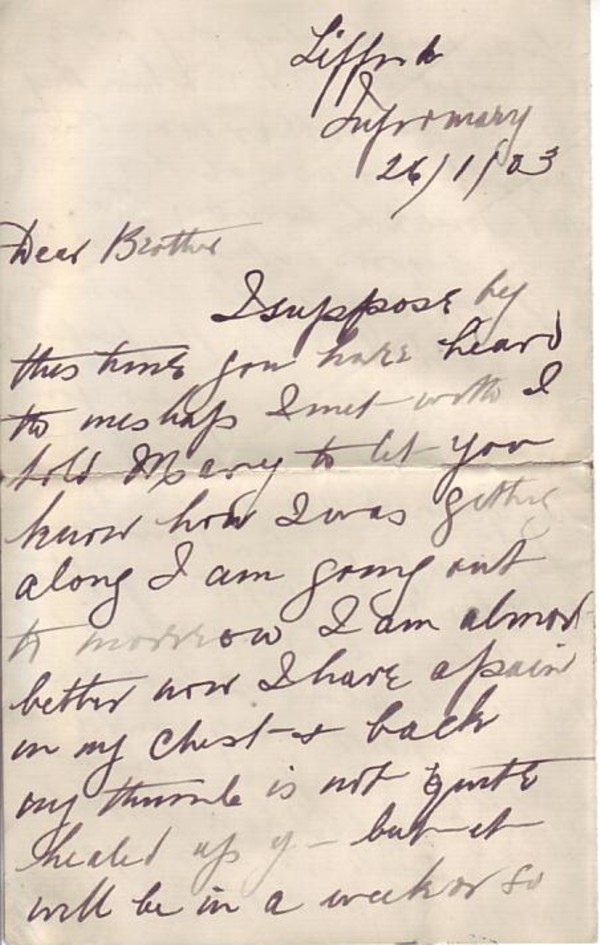 Lifford
Infromary
26/1/03
Dear Brother
I suppose by
this time you have heard
the mishap I met with I
told Mary to let you
know how I was getting
along I am going out
to morrow I am almost
better now I have a pain
in my chest & back
my thumb is not quite
healed up y- but it
will be in a week or so